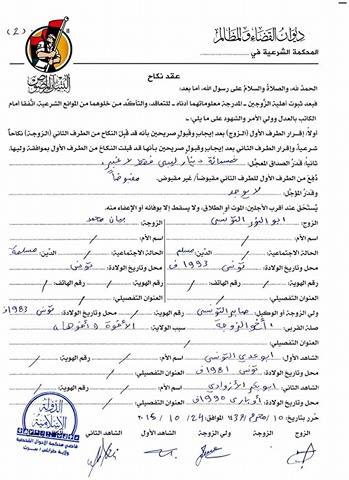 ديوان القضاء والمظالم
المحكمة الشرعية في
(2)
عقد نكاح
الحمد لله، والصلاة والسلام على رسول الله، أما بعد:
فبعد ثبوت أهلية الزوجين - المدرجة معلوماتهما أدناه - للتعاقد، والتأكد من خلوهما من الموانع الشرعية، اتفقا أمام
الكاتب بالعدل وولي الأمر والشهود على ما يلي:
أولاً: إقرار الطرف الأول (الزوج) بعد إيجاب وقبول صريحين بأنه قد قبل النكاح من الطرف الثاني (الزوجة) نكاحاً
شرعياً، وإقرار الطرف الثاني بعد إيجاب وقبول صريحين بأنه قد قبلت النكاح من الطرف الأول بموافقة وليها.
ثانياً: قدر الصداق المعجل: خمسمائة دينار ليبي فقط لا غير
دفع من الطرف الأول للطرف الثاني مقبوضاً/ غير مقبوض. مقبوضاً
وقدر المؤجل لا يوجد
يستحق عند أقرب الأجلين، الموت أو الطلاق، ولا يسقط إلا بوفائه أو الإعفاء منه.
الزوج: أبو النور التونسي الزوجة: بيان محمد
اسم الأم: / اسم الأم: /
الحالة الاجتماعية: / الدين: مسلم الحالة الاجتماعية: / الدين: مسلمة
محل وتاريخ الولادة: تونس 1993 ف محل وتاريخ الولادة: تونس /
رقم الهوية: / رقم الهاتف: / رقم الهوية: / رقم الهاتف: /
العنوان التفصيلي: / العنوان التفصيلي: /
ولي الزوجة أو الوكيل: صابر التونسي محل وتاريخ الولادة: تونس 1983ف
صلة القربى: أخ الزوجة سبب الولاية: الأخوة
الشاهد الأول: أبو عدي التونسي اسم الأم: / رقم الهوية: /
محل وتاريخ الولادة: تونس 1981 ف العنوان التفصيلي: /
الشاهد الثاني: أبو بكر الأزوادي اسم الأم: / رقم الهوية: /
محل وتاريخ الولادة: أوباري 1990ف العنوان التفصيلي: /
حرر بتاريخ: 10 / محرم / 1437 الموافق: 24 / 10 / 2015
الزوج الزوجة ولي الزوجة الشاهد الأول الشاهد الثاني
الدولة
الإسلامية